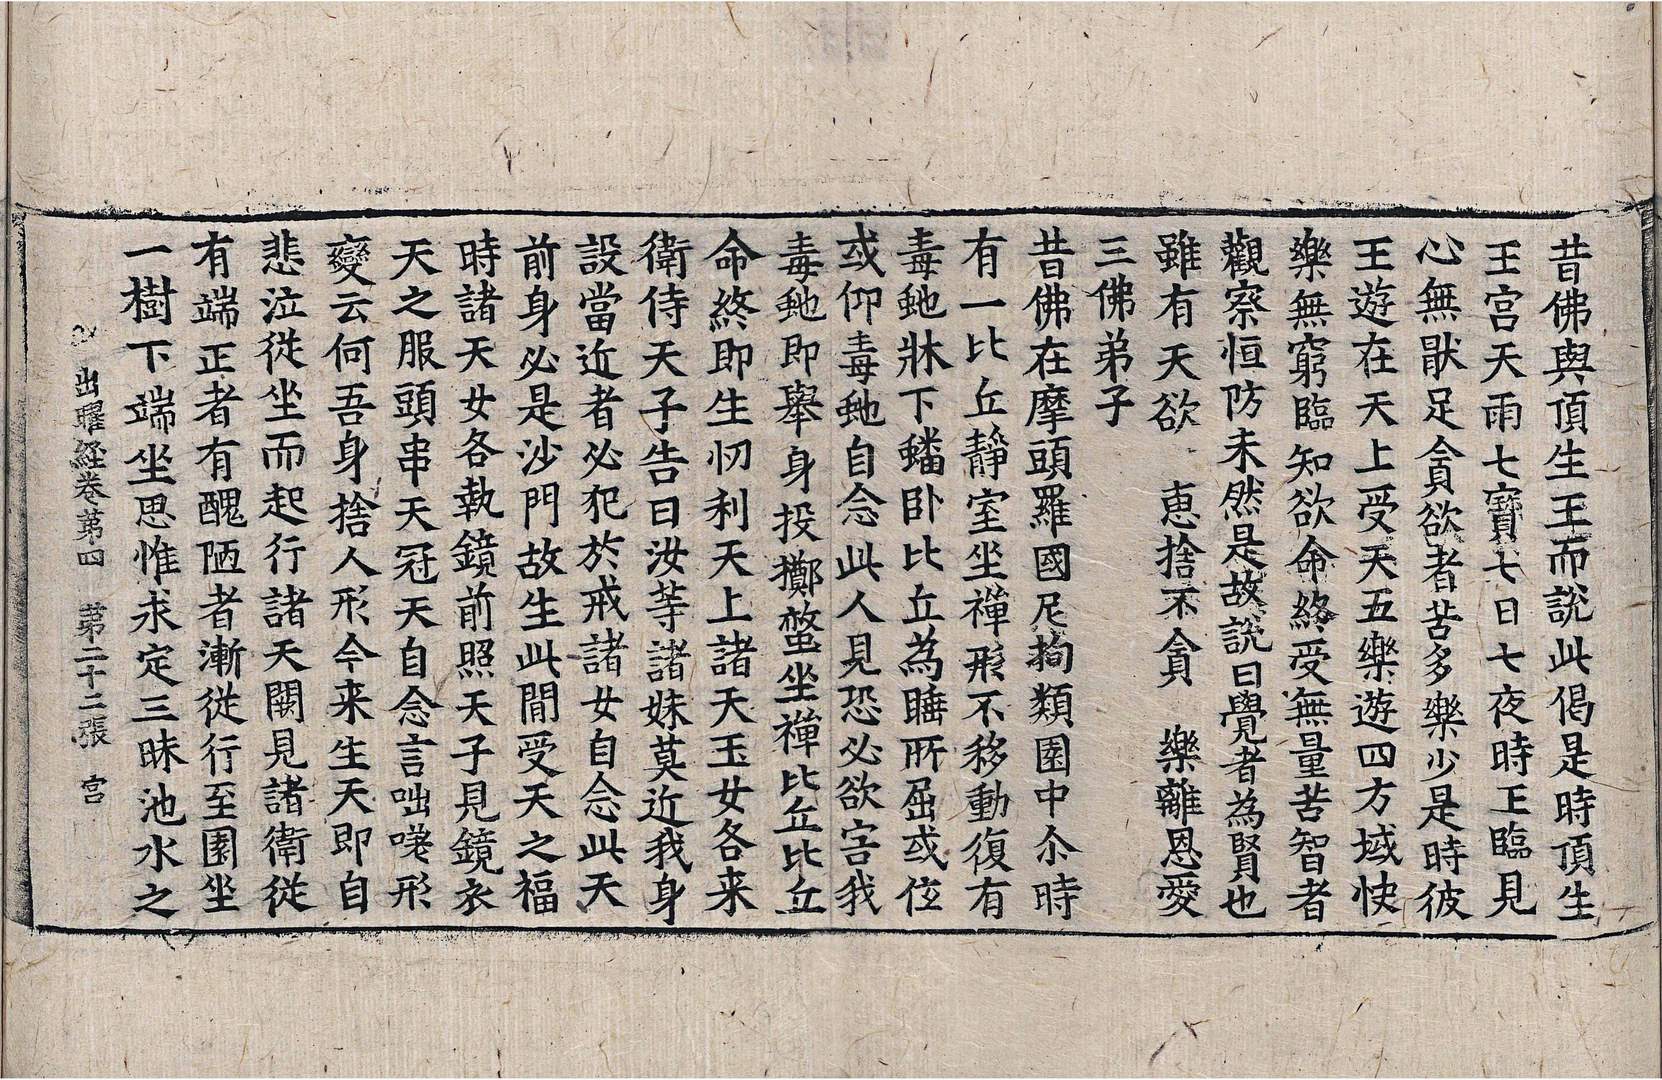 昔佛與頂生王而說此偈是時頂生
王宮天雨七寶七日七夜時王臨見
心無猒足貪欲者苦多樂少是時彼
王遊在天上受天五樂遊四方域快
樂無窮臨知欲命終受無量苦智者
觀察恒防未然是故說曰覺者為賢也
雖有天欲　恵捨不貪　樂離恩愛
三佛弟子
昔佛在摩頭羅國尼拘類園中尒時
有一比丘靜室坐禪形不移動復有
毒虵牀下蟠卧比丘為睡所屈或佂
或仰毒虵自念此人見恐必欲害我
毒虵即舉身投擲螫坐禪比丘比丘
命終即生忉利天上諸天玉女各来
衛侍天子告曰汝等諸妹莫近我身
設當近者必犯於戒諸女自念此天
前身必是沙門故生此間受天之福
時諸天女各執鏡前照天子見鏡衣
天之服頭串天冠天自念言咄嗟形
變云何吾身捨人形今来生天即自
悲泣從坐而起行諸天闕見諸衛從
有端正者有醜陋者漸從行至園坐
一樹下端坐思惟求定三昧池水之
出曜經卷第四　第二十二張　宮